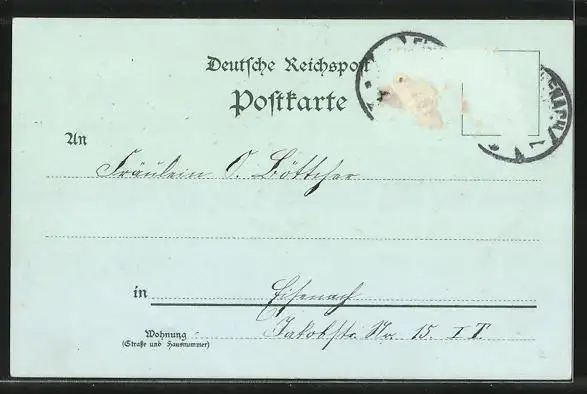 Deutsche Reichspost
Postkarte
An
Fräulein O. Böttcher
in Eisenach
Wohnung
(Straße und Hausnummer)
Jakobstr. No. 15. I T.